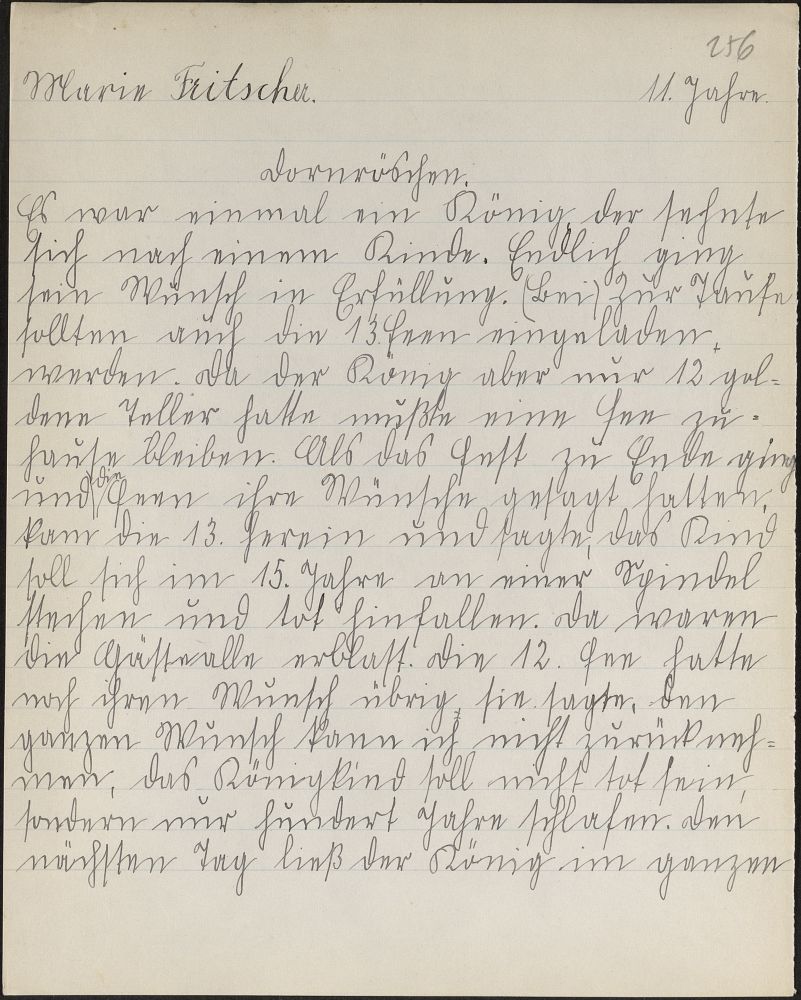 256
Marie Fritscher. 11. Jahre.
Dornröschen.
Es war einmal ein König, der sehnte
sich nach einem Kinde. Endlich ging
sein Wunsch in Erfüllung. (Bei) Zur Taufe
sollten auch die 13 Feen eingeladen
werden. Da der König aber nur 12 gol-
dene Teller hatte mußte eine Fee zu-
hause bleiben. Als das Fest zu Ende ging
und die Feen ihre Wünsche gesagt hatten,
kam die 13. herein und sagte, das Kind
soll sich im 15. Jahre an einer Spindel
stechen und tot hinfallen. Da waren
die Gäste alle erblast. Die 12. Fee hatte
noch ihren Wunsch übrig, sie sagte, den
ganzen Wunsch kann ich nicht zurückneh-
men, das Königkind soll nicht tot sein,
sondern nur hundert Jahre schlafen. Den
nächsten Tag ließ der König im ganzen